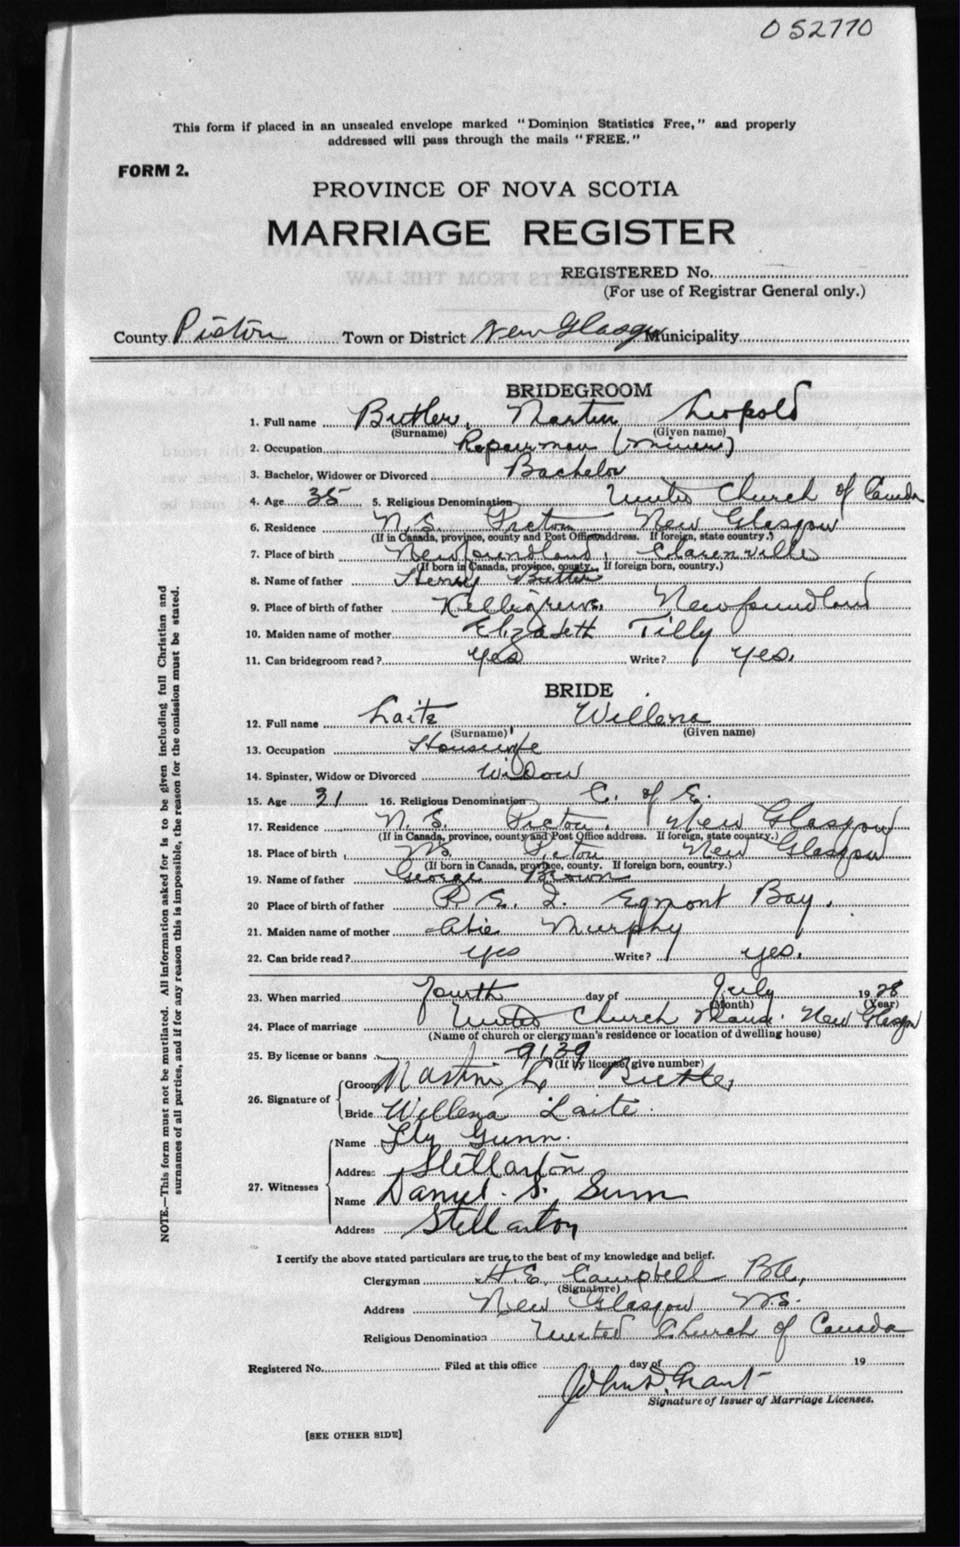 052770
This form if placed in an unsealed envelope marked "Dominion Statistics Free," and properly
addressed will pass through the mails "FREE."
FORM 2.
PROVINCE OF NOVA SCOTIA
MARRIAGE REGISTER
REGISTERED No.
(For use of Registrar General only.)
County Pictou Town or District New Glasgow Municipality
BRIDEGROOM
1. Full name Butler, Martin Leopold
(Surname) (Given name)
2. Occupation Repairman (miner)
3. Bachelor, Widower or Divorced Bachelor
4. Age 35 5. Religious Denomination United Church of Canada
6. Residence N. S. Pictou New Glasgow
(If in Canada, province, county and Post Office address. If foreign, state country.)
7. Place of birth Newfoundland, Clarenville
(If born in Canada, province, county. If foreign born, country.)
8. Name of father Henry Butler
9. Place of birth of father Kelligrews, Newfoundland
10. Maiden name of mother Elizabeth Tilly
11. Can bridegroom read? yes Write? yes.
BRIDE
12. Full name Laite Willena
(Surname) (Given name)
13. Occupation Housewife
14. Spinster, Widow or Divorced Widow
15. Age 31 16. Religious Denomination C. of E.
17. Residence N. S. Pictou, New Glasgow
(If in Canada, province, county and Post Office address. If foreign, state country.)
18. Place of birth N.S. Pictou New Glasgow
(If born in Canada, province, county. If foreign born, country.)
19. Name of father George Brown
20 Place of birth of father P. E. I. Egmont Bay.
21. Maiden name of mother Murphy
22. Can bride read? yes Write? yes.
23. When married fourth day of July 1928
(Month) (Year)
24. Place of marriage United Church Manse New Glasgow
(Name of church or clergyman's residence or location of dwelling house)
25. By license or banns 9139
(If by license, give number)
26. Signature of
Groom Martin L Butler
Bride Willena Laite.
27. Witnesses
Name Gunn.
Address Stellarton
Name Daniel S.
Address Stellarton
I certify the above stated particulars are true to the best of my knowledge and belief.
Clergyman H. E. Campbell
(Signature)
Address New Glasgow N.S.
Religious Denomination United Church of Canada
Registered No. Filed at this office day of 19
John Grant
Signature of Issuer of Marriage Licenses.
[SEE OTHER SIDE]
NOTE.—This form must not be mutilated. All information asked for is to be given including full Christian and
surnames of all parties, and if for any reason this is impossible, the reason for the omission must be stated.